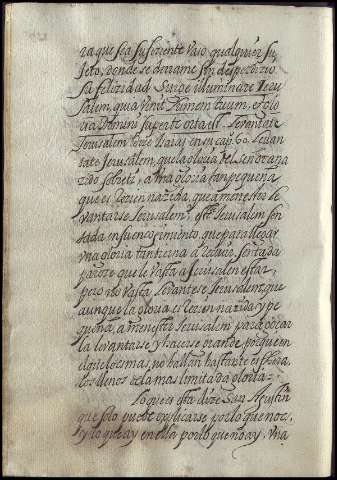 ra que sea suficiente Vaso qualquier su
jeto, donde se derrame sin desperdicio
la felizidad, Surge illuminare Ieru
salem, quia Venit lumen tuum, et glo
ria Domini super te orta est. Levantate
Jerusalem dize Isaias en su cap. 60. levan
tate Jerusalem, que la gloria del Señor a na
zido sobre ti, a Una gloria tan pequeña
que es rezien nazida, que a menester le
vantarse Jerusalem? esté Jerusalem sen
tada en su encogimiento, que para llegar
Vna gloria tan tierna a sentada
pareze que le Vasta a Jerusalen estar
pero no Vasta, levantese Jerusalem, que
aunque la gloria es rezien nazida, y pe
queña, a menester Jerusalem para gozar
la levantarse, y hacerse grande, porque en
el que lo es mas, no hallan bastante esphera
los llenos de la mas limitada gloria.
Lo que es esta dize San Agustin
que solo puede explicarse por lo que no es,
y lo que ay en ella por lo que no ay, Vna